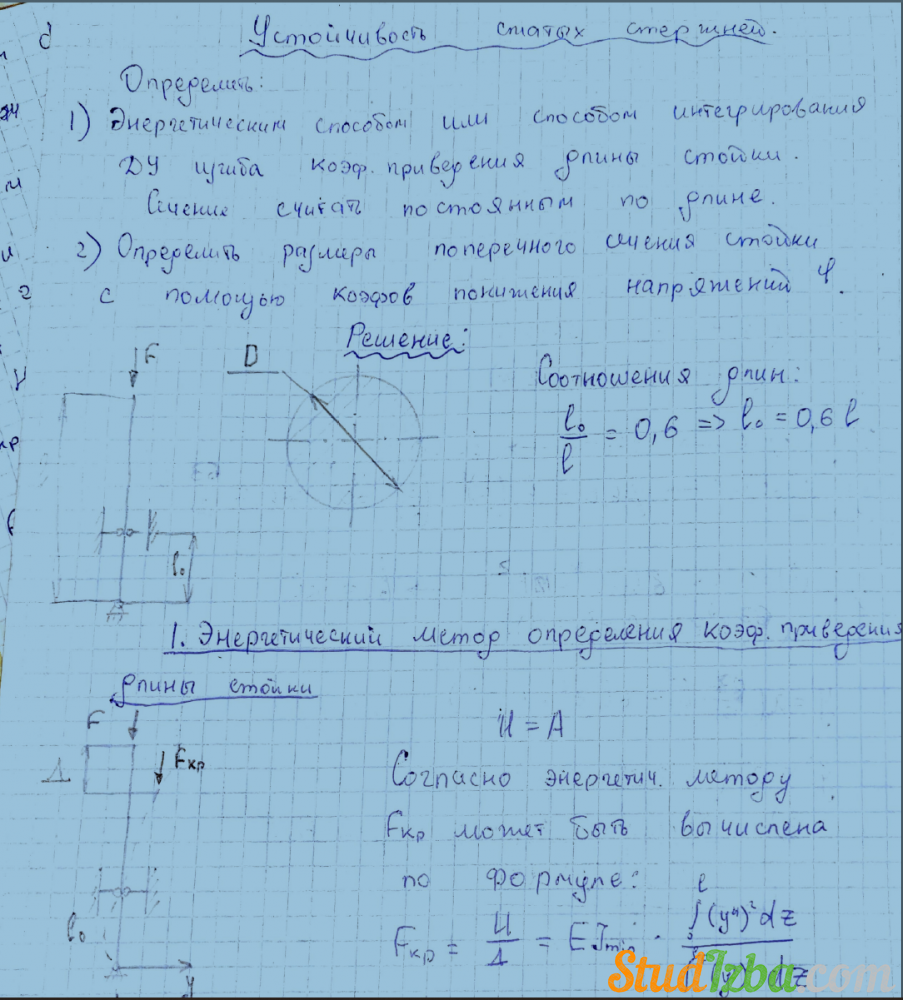 Устойчивость сжатых стержней.
Определить:
1) Энергетическим способом или способом интегрирования
ДУ изгиба коэф. приведения длины стойки.
Сечение считать постоянным по длине.
2) Определить размеры поперечного сечения стойки
с помощью коэфов понижения напряжений φ.
Решение:
F
D
Соотношения длин:
l₀/l = 0,6 => l₀ = 0,6 l
l₀
A
1. Энергетический метод определения коэф. приведения
длины стойки
F
U = A
Fкр
Δ
Согласно энергетич. методу
Fкр может быть вычислена
по формуле:
l₀
Fкр = U/Δ = EJmin · ∫(y'')² dz
y
StudIzba.com